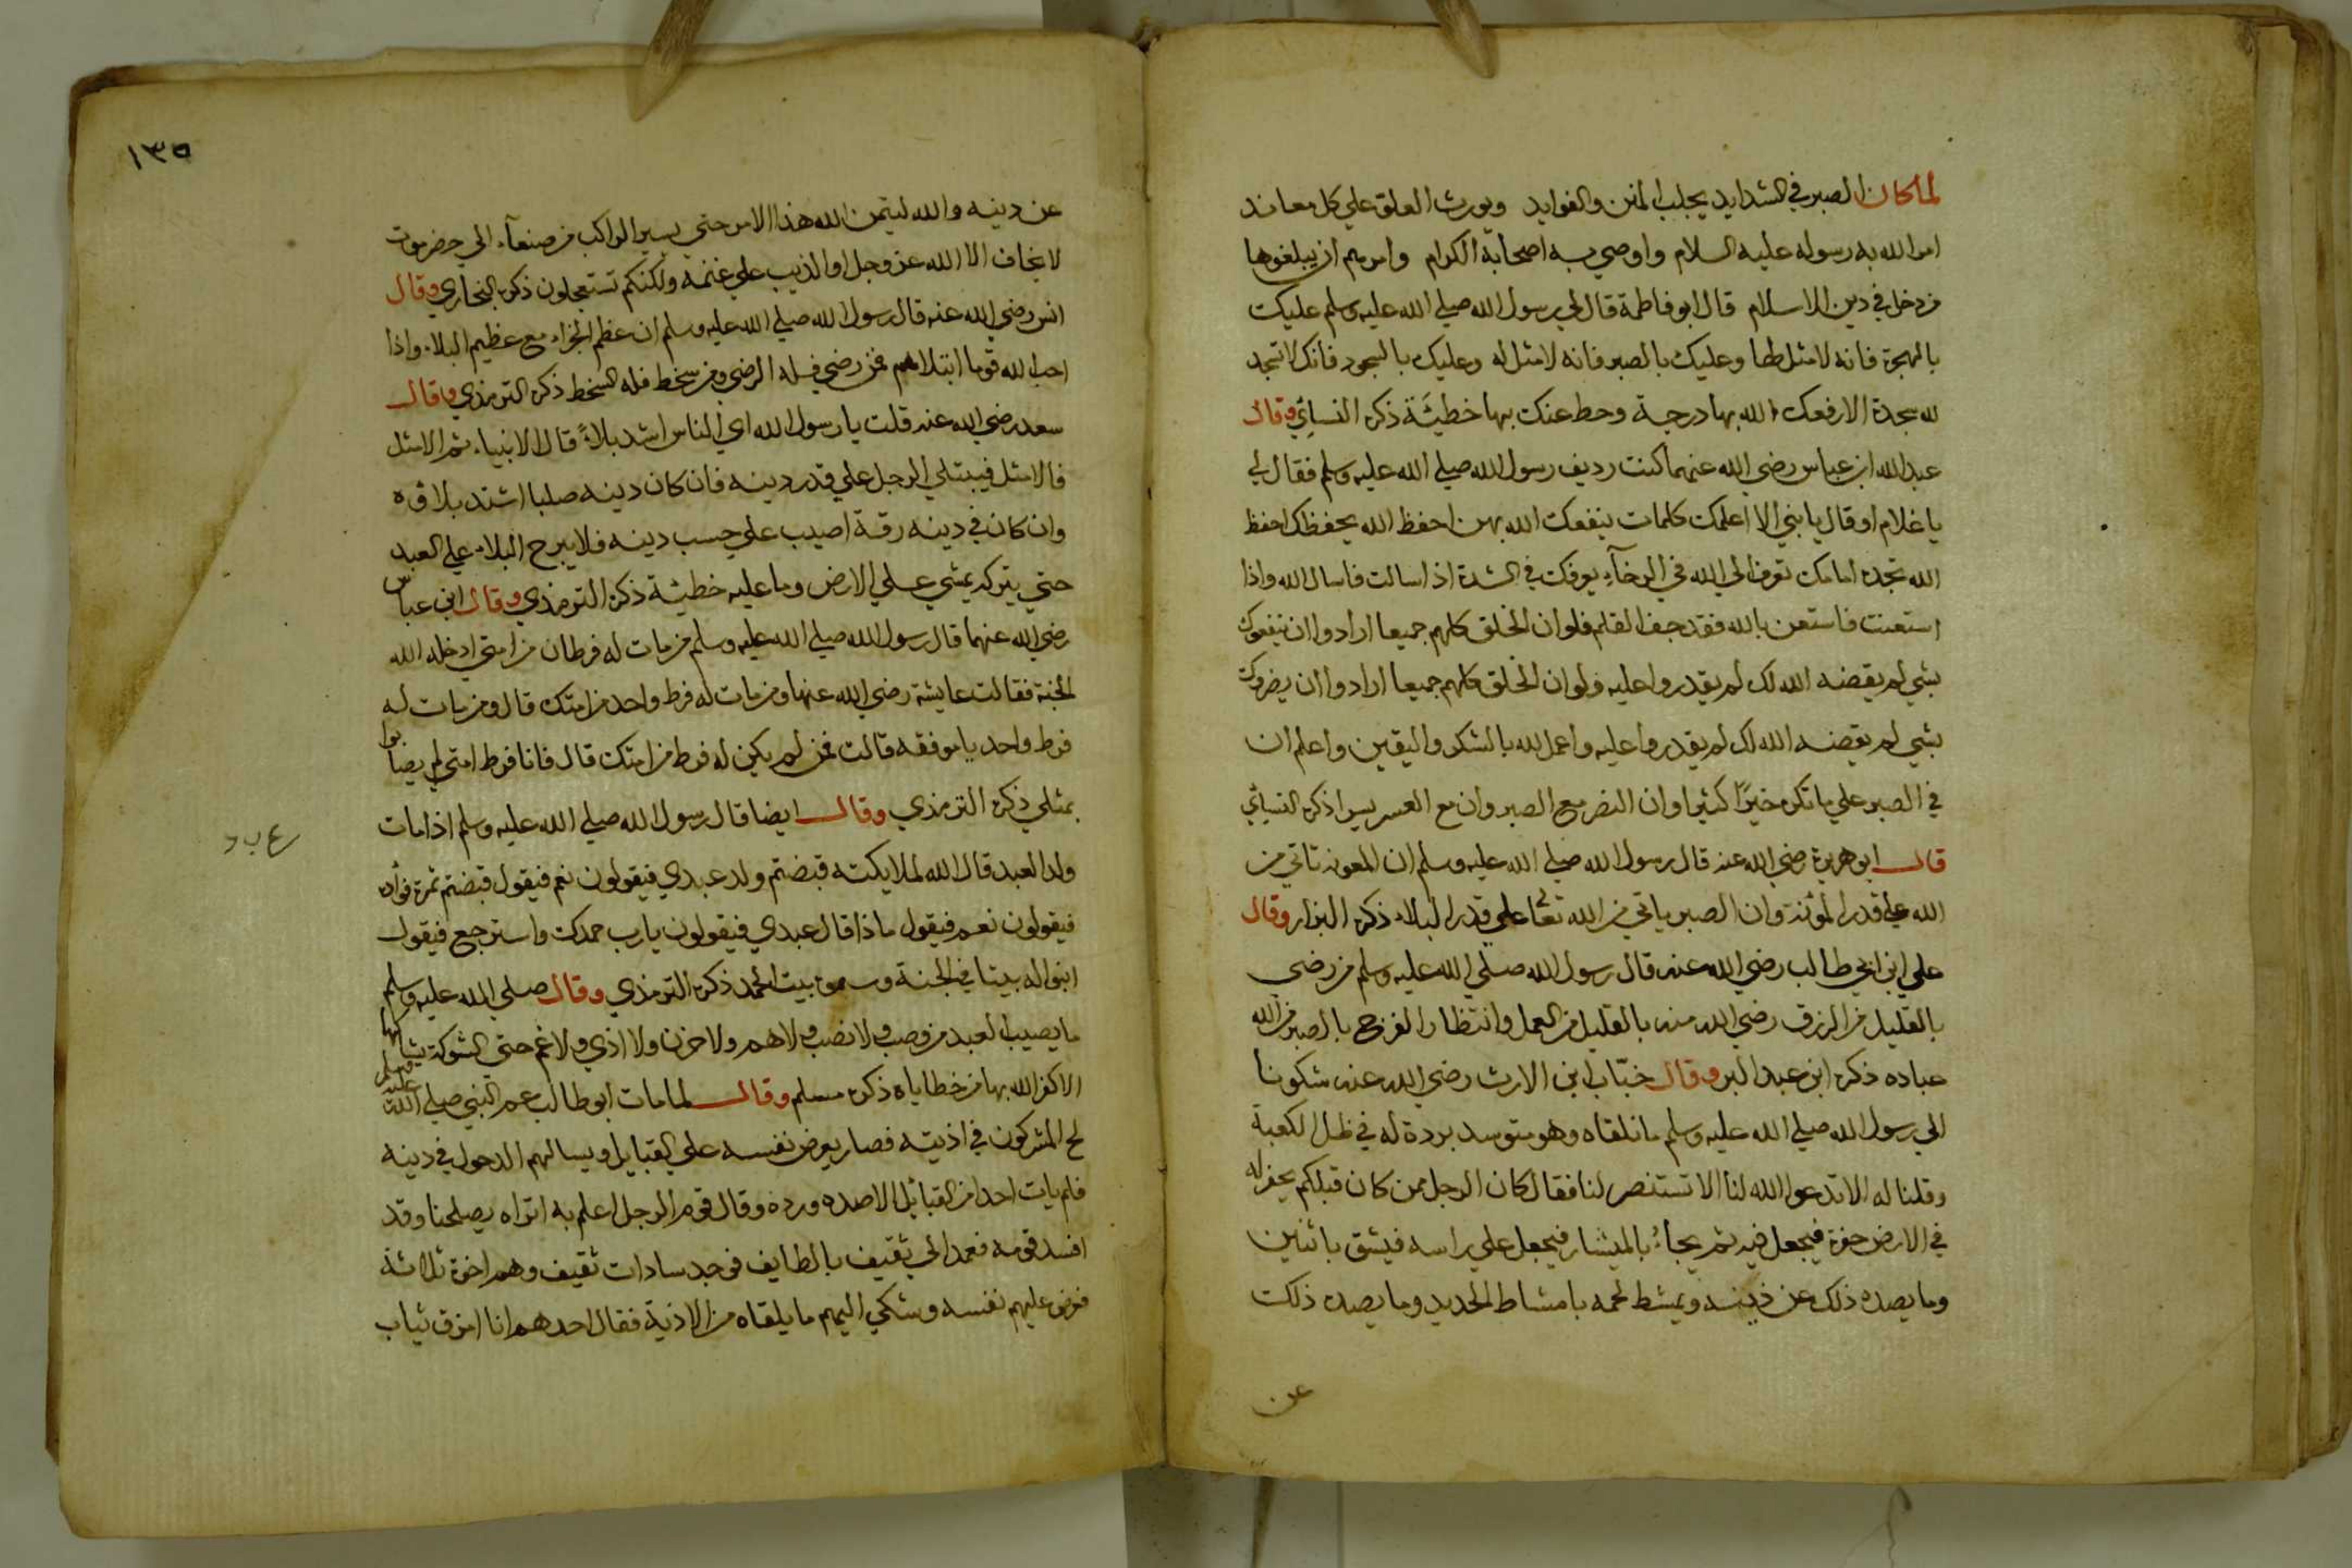 لما كان الصبر في الشدايد يجلب المنن والفوايد ويورث العلو علي كل معاند
امر الله به رسوله عليه السلام واوصي به اصحابه الكرام وامرهم ان يبلغوها
من دخل في دين الاسلام قال ابو فاطمة قال لي رسول الله صلي الله عليه وسلم عليك
بالهجرة فانه لا مثل لها وعليك بالصبر فانه لا مثل له وعليك بالسجود فانك لا تسجد
لله سجدة الا رفعك الله بها درجة وحط عنك بها خطيئة ذكره النسائي وقال
عبد الله ابن عباس رضي الله عنهما كنت رديف رسول الله صلي الله عليه وسلم فقال لي
يا غلام او قال يا بني الا اعلمك كلمات ينفعك الله بهن احفظ الله يحفظك احفظ
الله تجده امامك تعرف الي الله في الرخآء يعرفك في الشدة اذا سالت فاسال الله واذا
استعنت فاستعن بالله فقد جف القلم فلو ان الخلق كلهم جميعا ارادوا ان ينفعوك
بشي لم يقضه الله لك لم يقدروا عليه ولو ان الخلق كلهم جميعا ارادوا ان يضروك
بشي لم يقضه الله لك لم يقدروا عليه واعمل لله بالشكر واليقين واعلم ان
في الصبر علي ما تكره خيرًا كثيرا وان النصر مع الصبر وان مع العسر يسرا ذكره النسيائي
قال ابو هريرة رضي الله عنه قال رسول الله صلي الله عليه وسلم ان المعونه تاتي من
الله علي قدر المؤنة وان الصبر ياتي من الله تعالي علي قدر البلاء ذكره البزار وقال
علي ابن ابي طالب رضي الله عنه قال رسول الله صلي الله عليه وسلم من رضي
بالقليل من الرزق رضي الله منه بالقليل من العمل وانتظار الفرج بالصبر من الله
عباده ذكره ابن عبد البر وقال خبّاب ابن الارث رضي الله عنه شكونا
الي رسول الله صلي الله عليه وسلم ما نلقاه وهو متوسد بردة له في ظل الكعبة
وقلنا له الا تدعوا الله لنا الا تستنصر لنا فقال كان الرجل ممن كان قبلكم يحفر له
في الارض حفرة فيجعل فيه ثم يجاءُ بالميشار فيجعل علي راسه فيشق باثنين
وما يصده ذلك عن دينه ويمشط لحمه بامشاط الحديد وما يصده ذلك
عن
١٣٥
عن دينه والله ليتمن الله هذا الامر حتي يسير الراكب من صنعآء الي حضرموت
لا يخاف الا الله عز وجل او الذيب علي غنمه ولكنكم تستعجلون ذكره البخاري وقال
انس رضي الله عنه قال رسول الله صلي الله عليه وسلم ان عظم الجزاء مع عظيم البلاء واذا
احب الله قوما ابتلاهم فمن رضي فله الرضي ومن سخط فله السخط ذكره الترمذي وقال
سعد رضي الله عنه قلت يا رسول الله اي الناس اشد بلاءً قال الانبياء ثم الامثل
فالامثل فيبتلي الرجل علي قدر دينه فان كان دينه صلبا اشتد بلاؤه
وان كان في دينه رقة اصيب علي حسب دينه فلا يبرح البلاء علي العبد
حتي يتركه يمشي علي الارض وما عليه خطيئة ذكره الترمذي وقال ابن عباس
رضي الله عنهما قال رسول الله صلي الله عليه وسلم من مات له فرطان من امتي ادخله الله
الجنة فقالت عايشة رضي الله عنها ومن مات له فرط واحد من امتك قال ومن مات له
فرط واحد يا موفقه قالت فمن لم يكن له فرط من امتك قال فانا فرط امتي لم يصابوا
بمثلي ذكره الترمذي وقال ايضا قال رسول الله صلي الله عليه وسلم اذا مات
ولد العبد قال الله لملايكته قبضتم ولد عبدي فيقولون نعم فيقول قبضتم ثمرة فواده
فيقولون نعم فيقول ماذا قال عبدي فيقولون يا رب حمدك واسترجع فيقول
ابنوا له بيتا في الجنة وسموه بيت الحمد ذكره الترمذي وقال صلي الله عليه وسلم
ما يصيب العبد من وصب ولا نصب ولا هم ولا حزن ولا اذي ولا غم حتي الشوكة يشاكها
الا كفر الله بها من خطاياه ذكره مسلم وقال لما مات ابو طالب عم النبي صلي الله عليه وسلم
لح المشركون في اذيته فصار يعرض نفسه علي القبايل ويسالهم الدخول في دينه
فلم يات احدا من القبائل الا صده ورده وقال قوم الرجل اعلم به اتراه يصلحنا وقد
افسد قومه فعمد الي ثقيف بالطايف فوجد سادات ثقيف وهم اخوة ثلاثة
فعرض عليهم نفسه وشكي اليهم ما يلقاه من الاذية فقال احدهم انا امزق ثياب